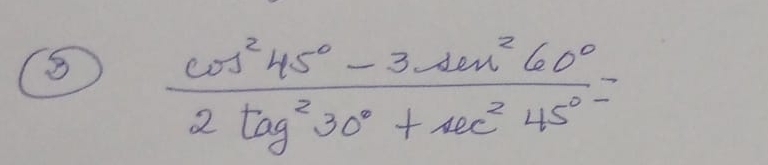 ③ cos² 45° - 3 sen² 60° =
2 tag² 30° + sec² 45°